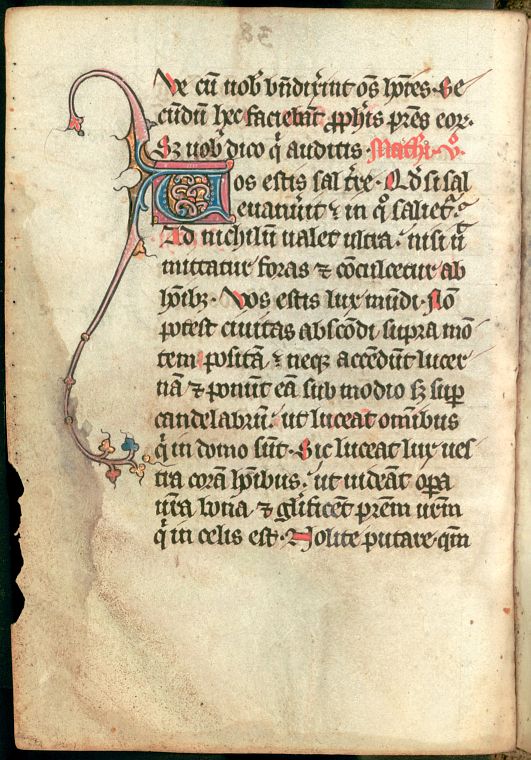 Ve cũ uob̾ bñdixĩut oẽs hoĩes. Se
cũdũ hec faciebãt ꝓphis pr̃es eoꝝ.
Sꝫ uob̾ dico q̃ auditis. Math̾i. v̊.
Uos estis sal tr̃e. Qd si sal
euanu̾it ⁊ in q̊ saliet̾.
Ad nichilũ ualet ultra. nisi ut
mittatur foras ⁊ cõculcetur ab
hoĩbꝫ. Vos estis lux mũdi. Nõ
potest ciuitas abscõdi supra mõ
tem posita ⁊ neqꝫ accẽdũt lucer
nã ⁊ ponũt eã sub modio sꝫ suꝑ
candelabrũ. ut luceat omĩbus
q̃ in domo sũt. Sic luceat lux ues
tra corã hoĩbus. ut uideãt oꝑa
ur̃a bona ⁊ gl̾ificẽt pr̃em ur̃m
q̃ in celis est. Nolite putare qm̃